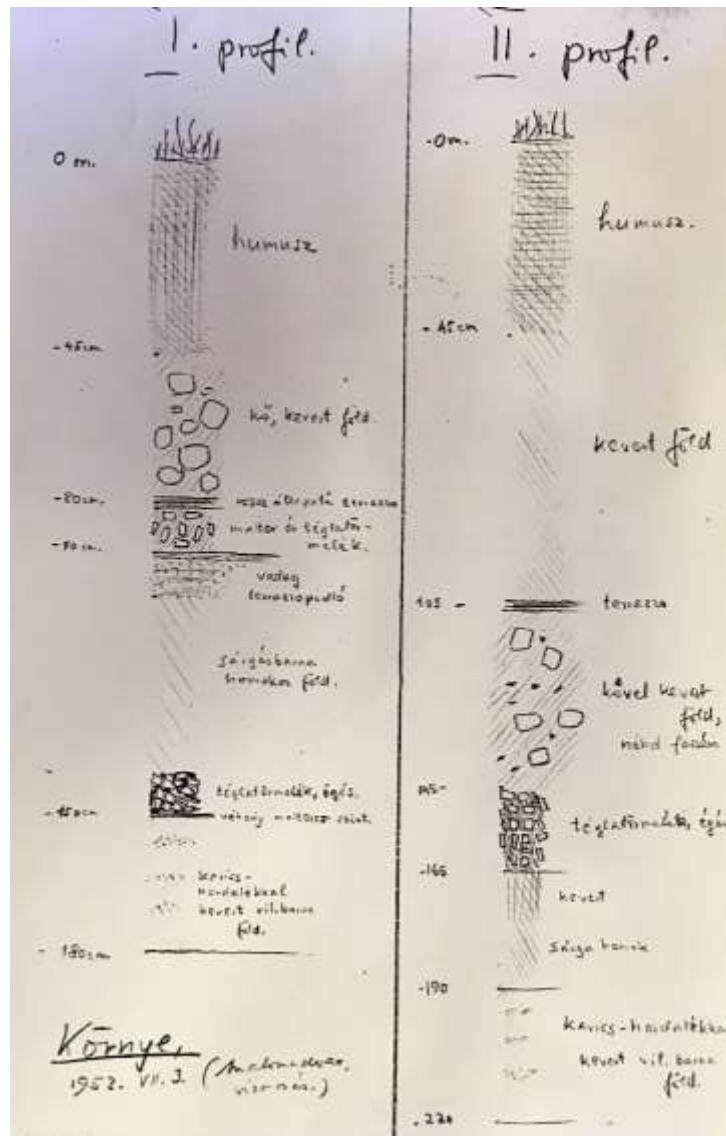 I. profil.
0 m.
humusz
-45cm
kő, kevert föld.
-80cm.
terrazzo
és téglatör-
melék.
-90cm.
vastag
terrazzopadló
sárgásbarna
homokos föld.
téglatörmelék, égés.
vékony szint.
-150cm
kavics-
hordalékkal
kevert vil.barna
föld.
-180cm
Környe,
1952. VII. 3.
II. profil.
-0m.
humusz.
-45cm
kevert föld
105 -
kővel kevert
föld,
téglatörmelék, égés
-165
kevert
sárga homok
-190
kavics-hordalékka
kevert vil. barna
föld.
-220